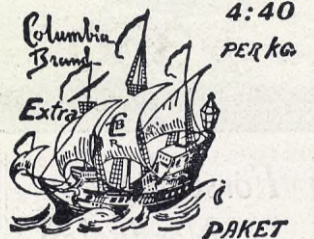 Columbia
Brand
Extra
4:40
PER KG
PAKET